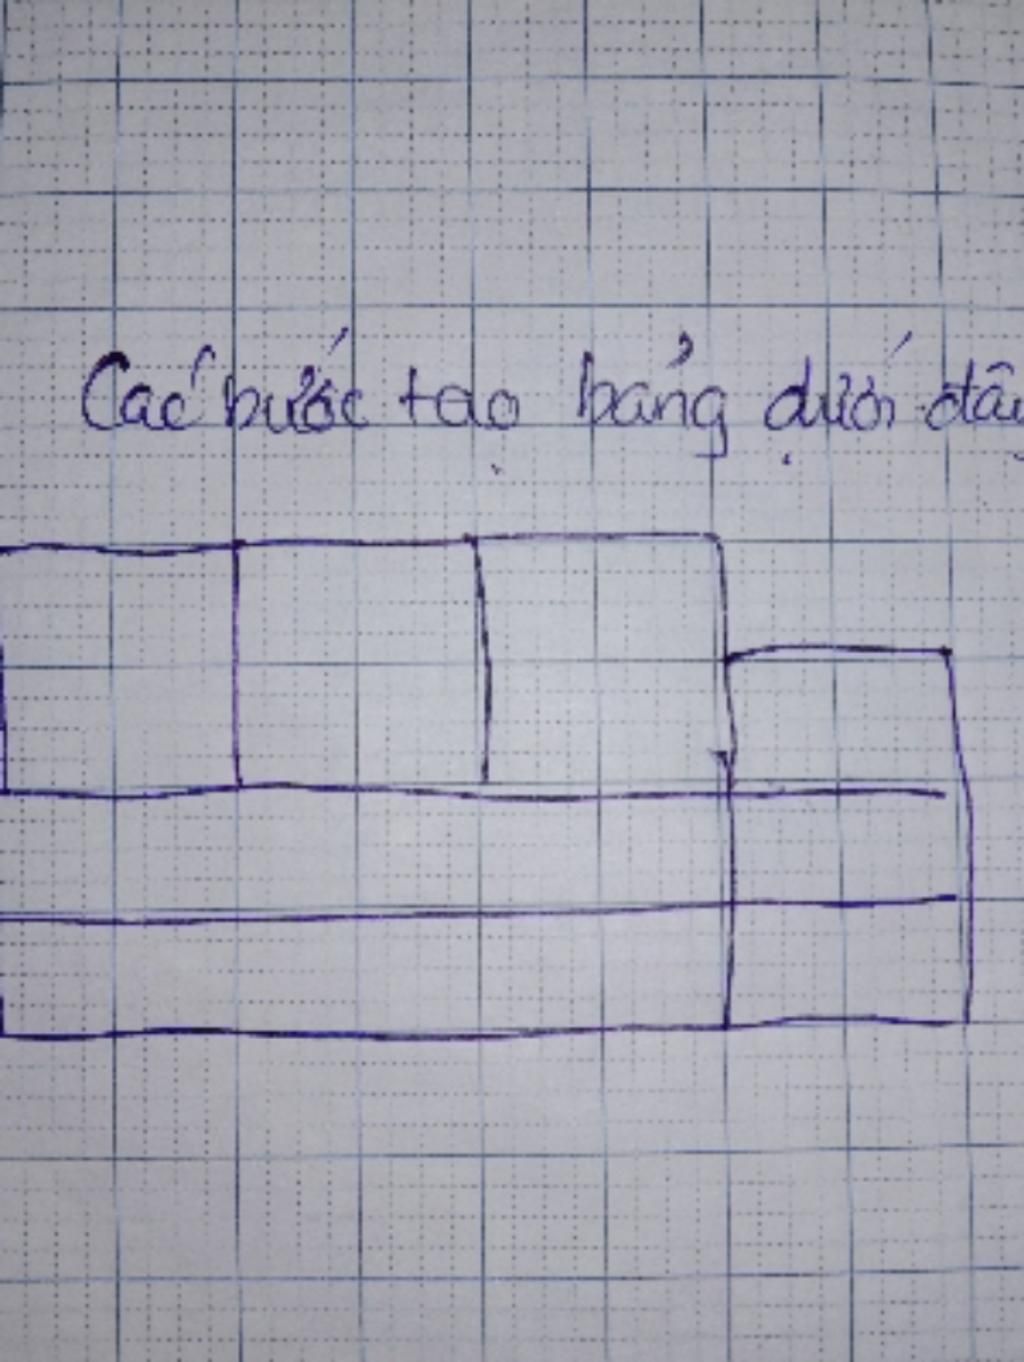 Các bước tạo bảng dưới đây